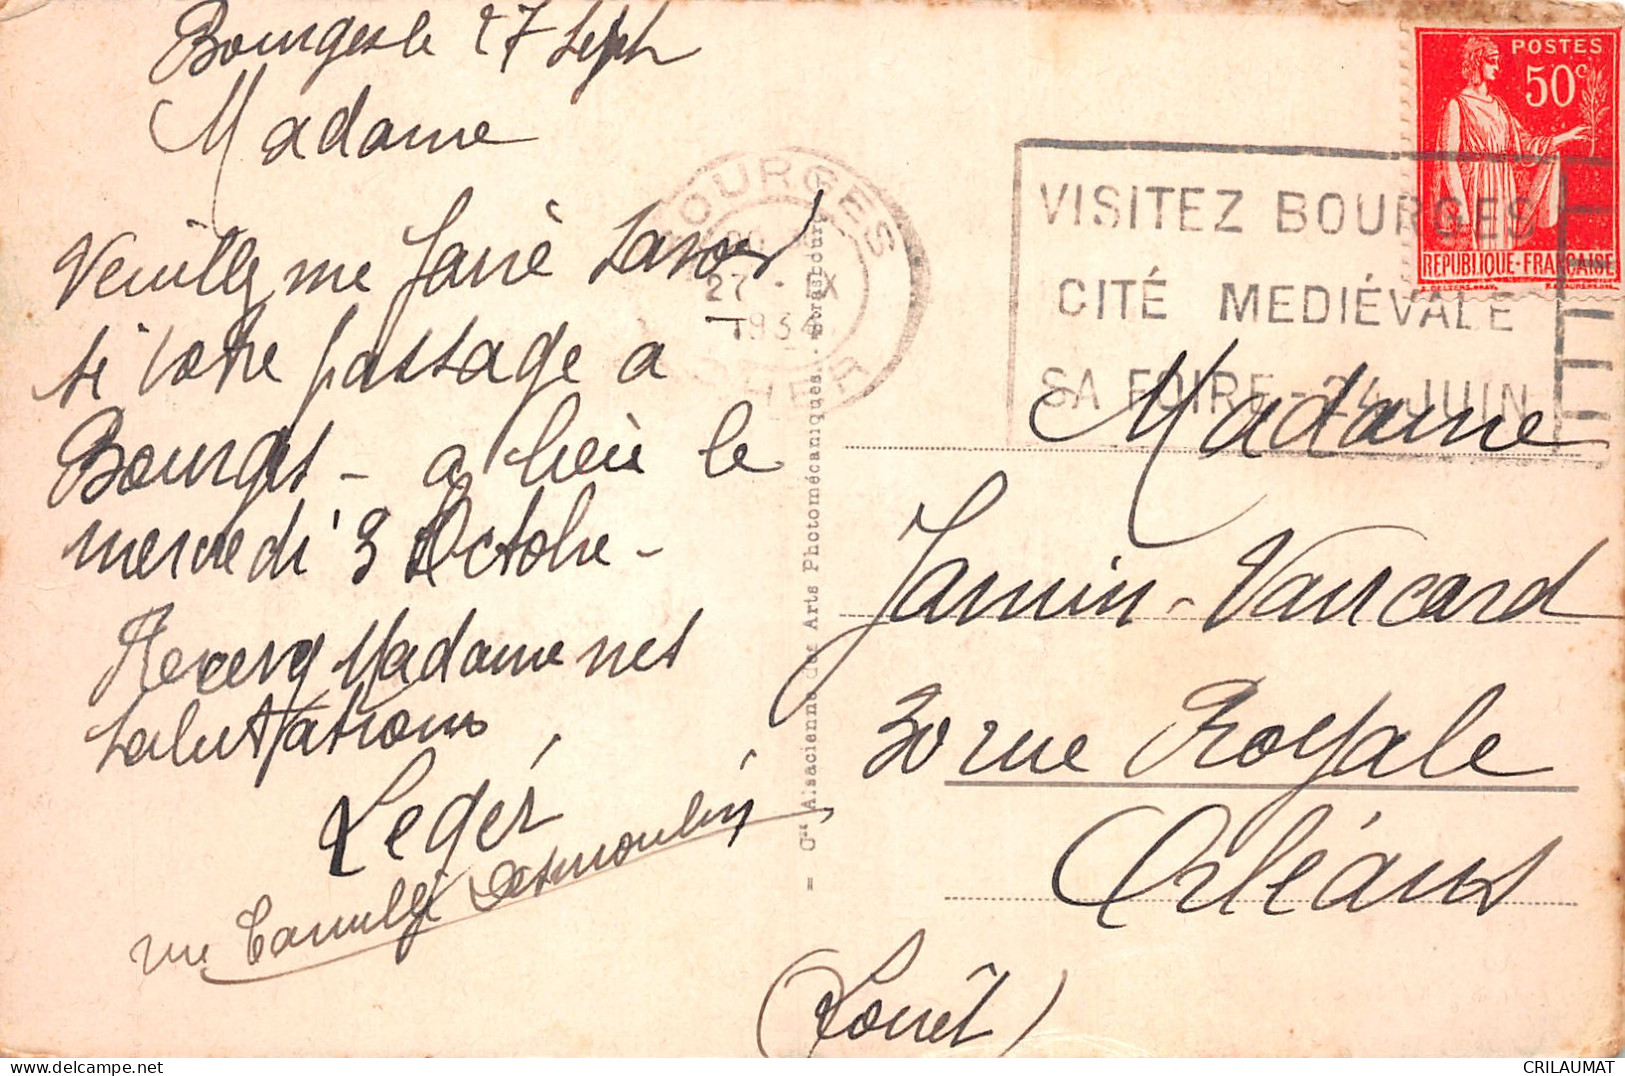 Bourges le 27 Sept
Madame
Veuillez me faire savoir
si votre passage a
Bourges - a lieu le
mercredi 3 Octobre -
Recevez Madame nes
salutations
Leger
rue Camille Desmoulin
= Cie Alsacienne des Arts Photomécaniques. - Strasbourg
BOURGES
27 - IX
1934
CHER
VISITEZ BOURGES
CITÉ MEDIÉVALE
SA FOIRE - 24 JUIN
POSTES
50c
REPUBLIQUE-FRANÇAISE
Madame
Jamin-Vancard
30 rue Royale
Orléans
(Loiret)
CRILAUMAT